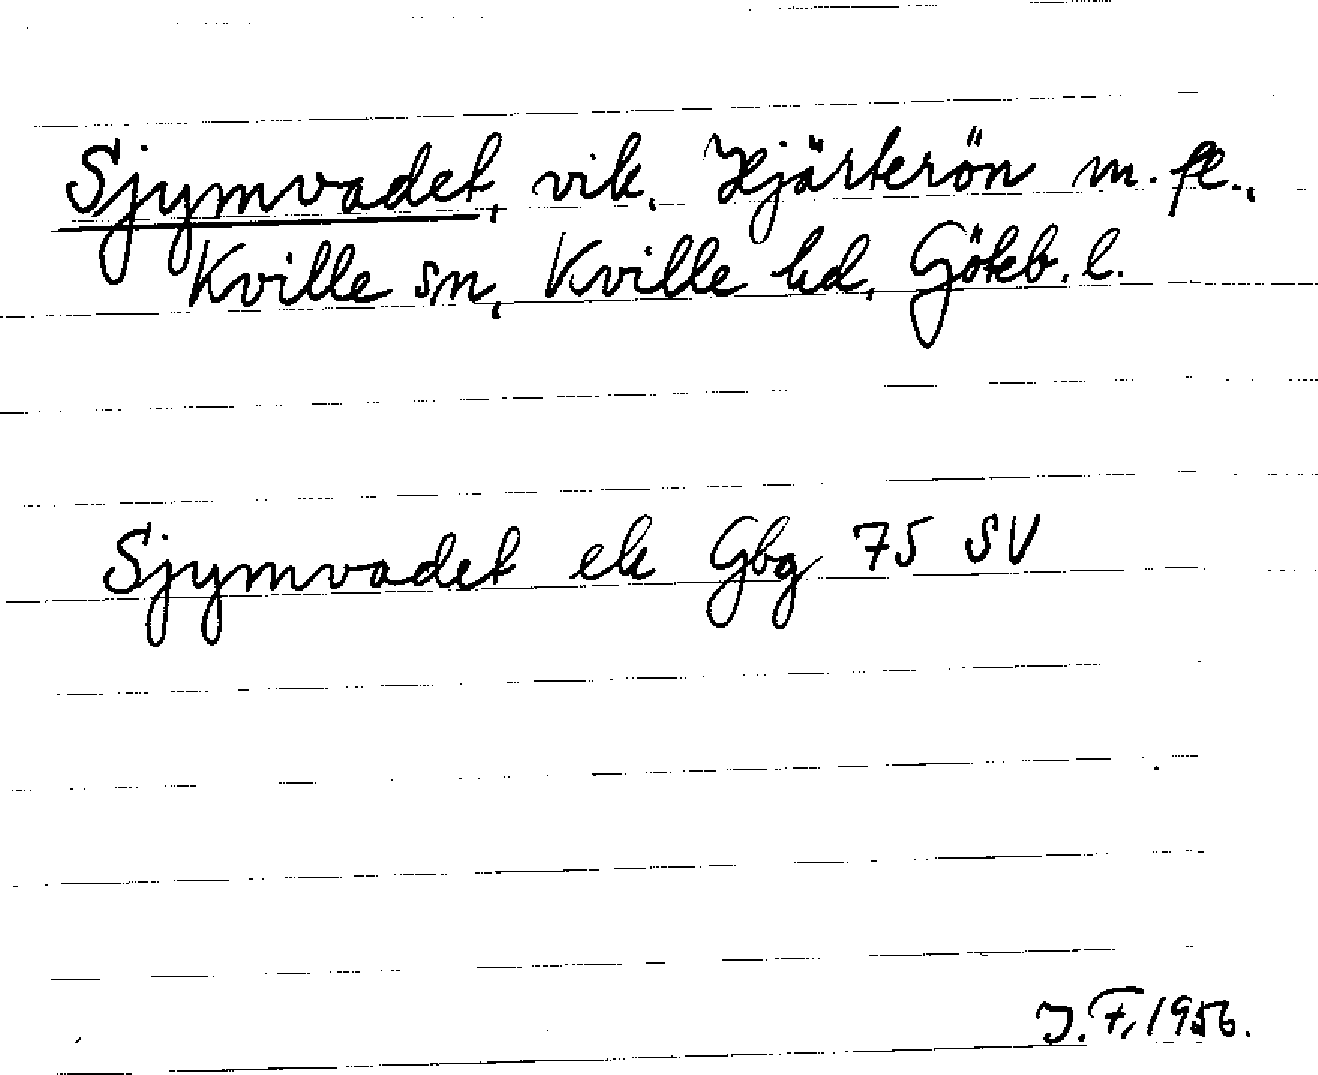 Sjymvadet, vik, Hjärterön m. fl.,
Kville sn, Kville hd, Göteb. l.
Sjymvadet ek Gbg 75 SV
J. F, 1956.